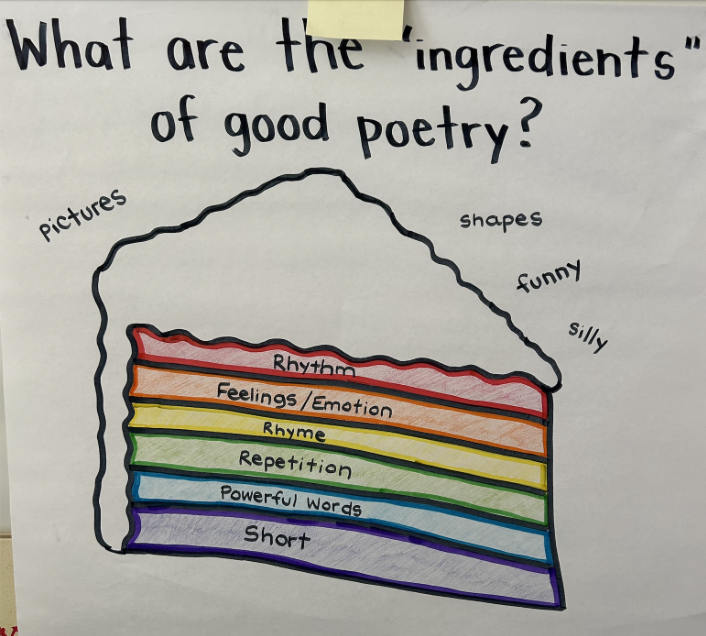 What are the "ingredients"
of good poetry?
pictures
shapes
funny
silly
Rhythm
Feelings/Emotion
Rhyme
Repetition
Powerful Words
Short